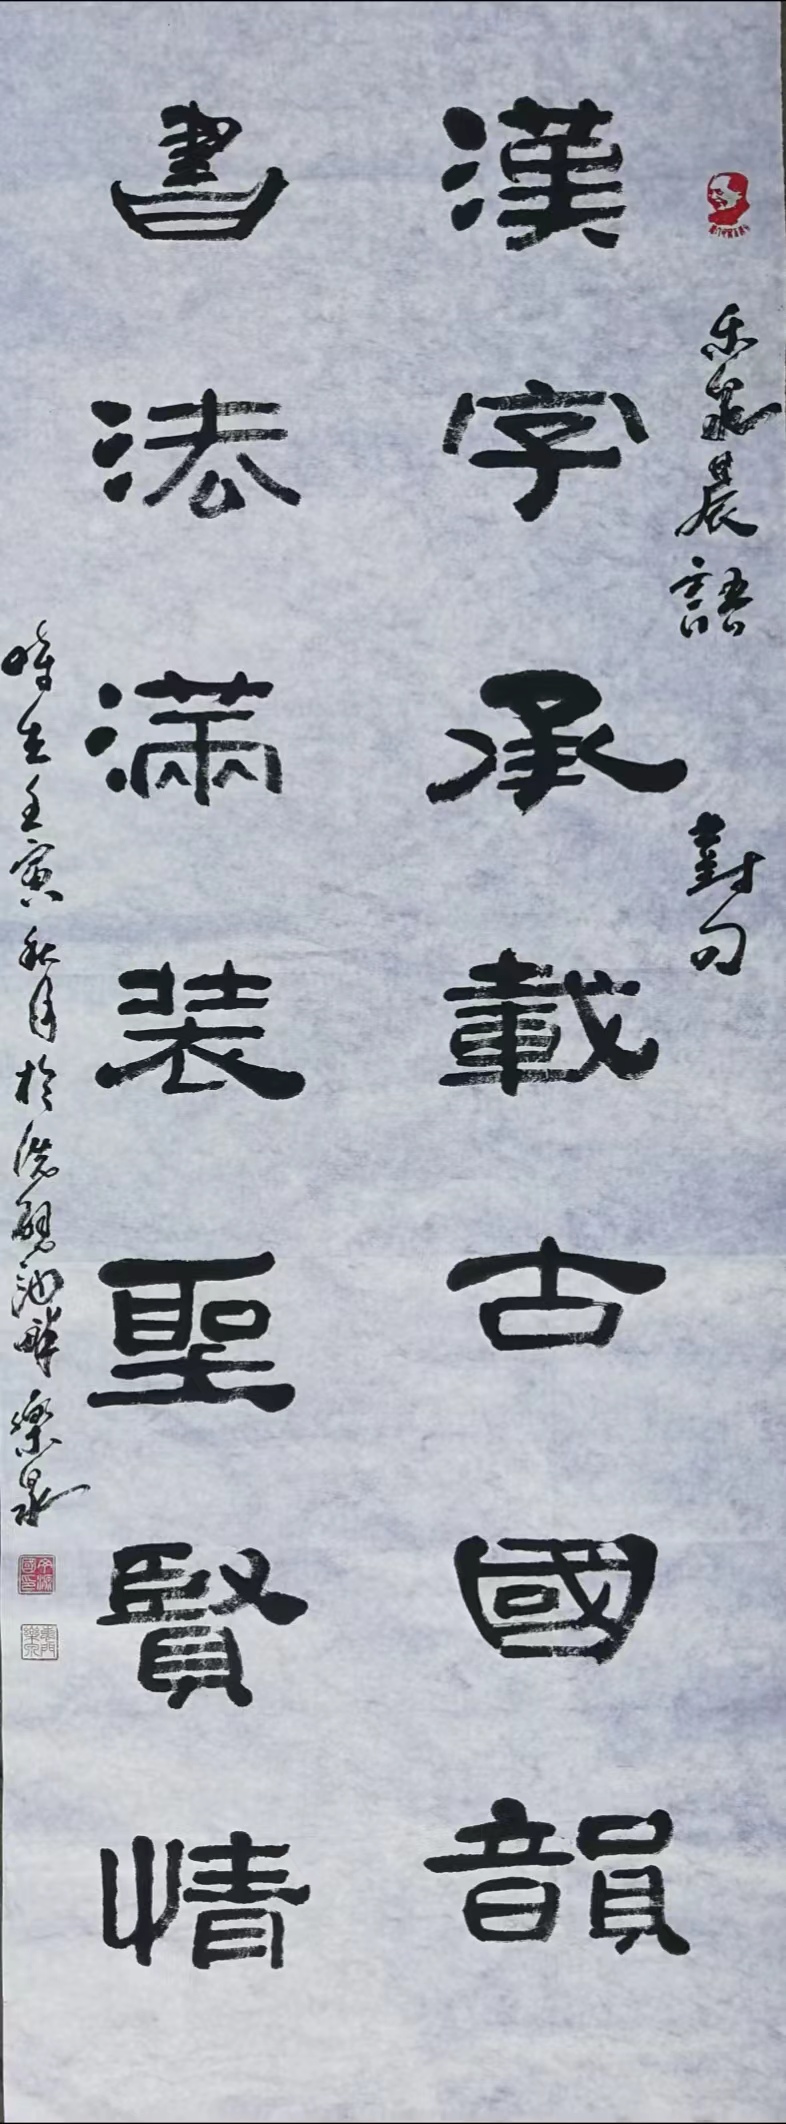 樂泉晨語 對句
漢字承載古國韻
書法滿裝聖賢情
時在壬寅秋月於洗硯池畔 樂泉